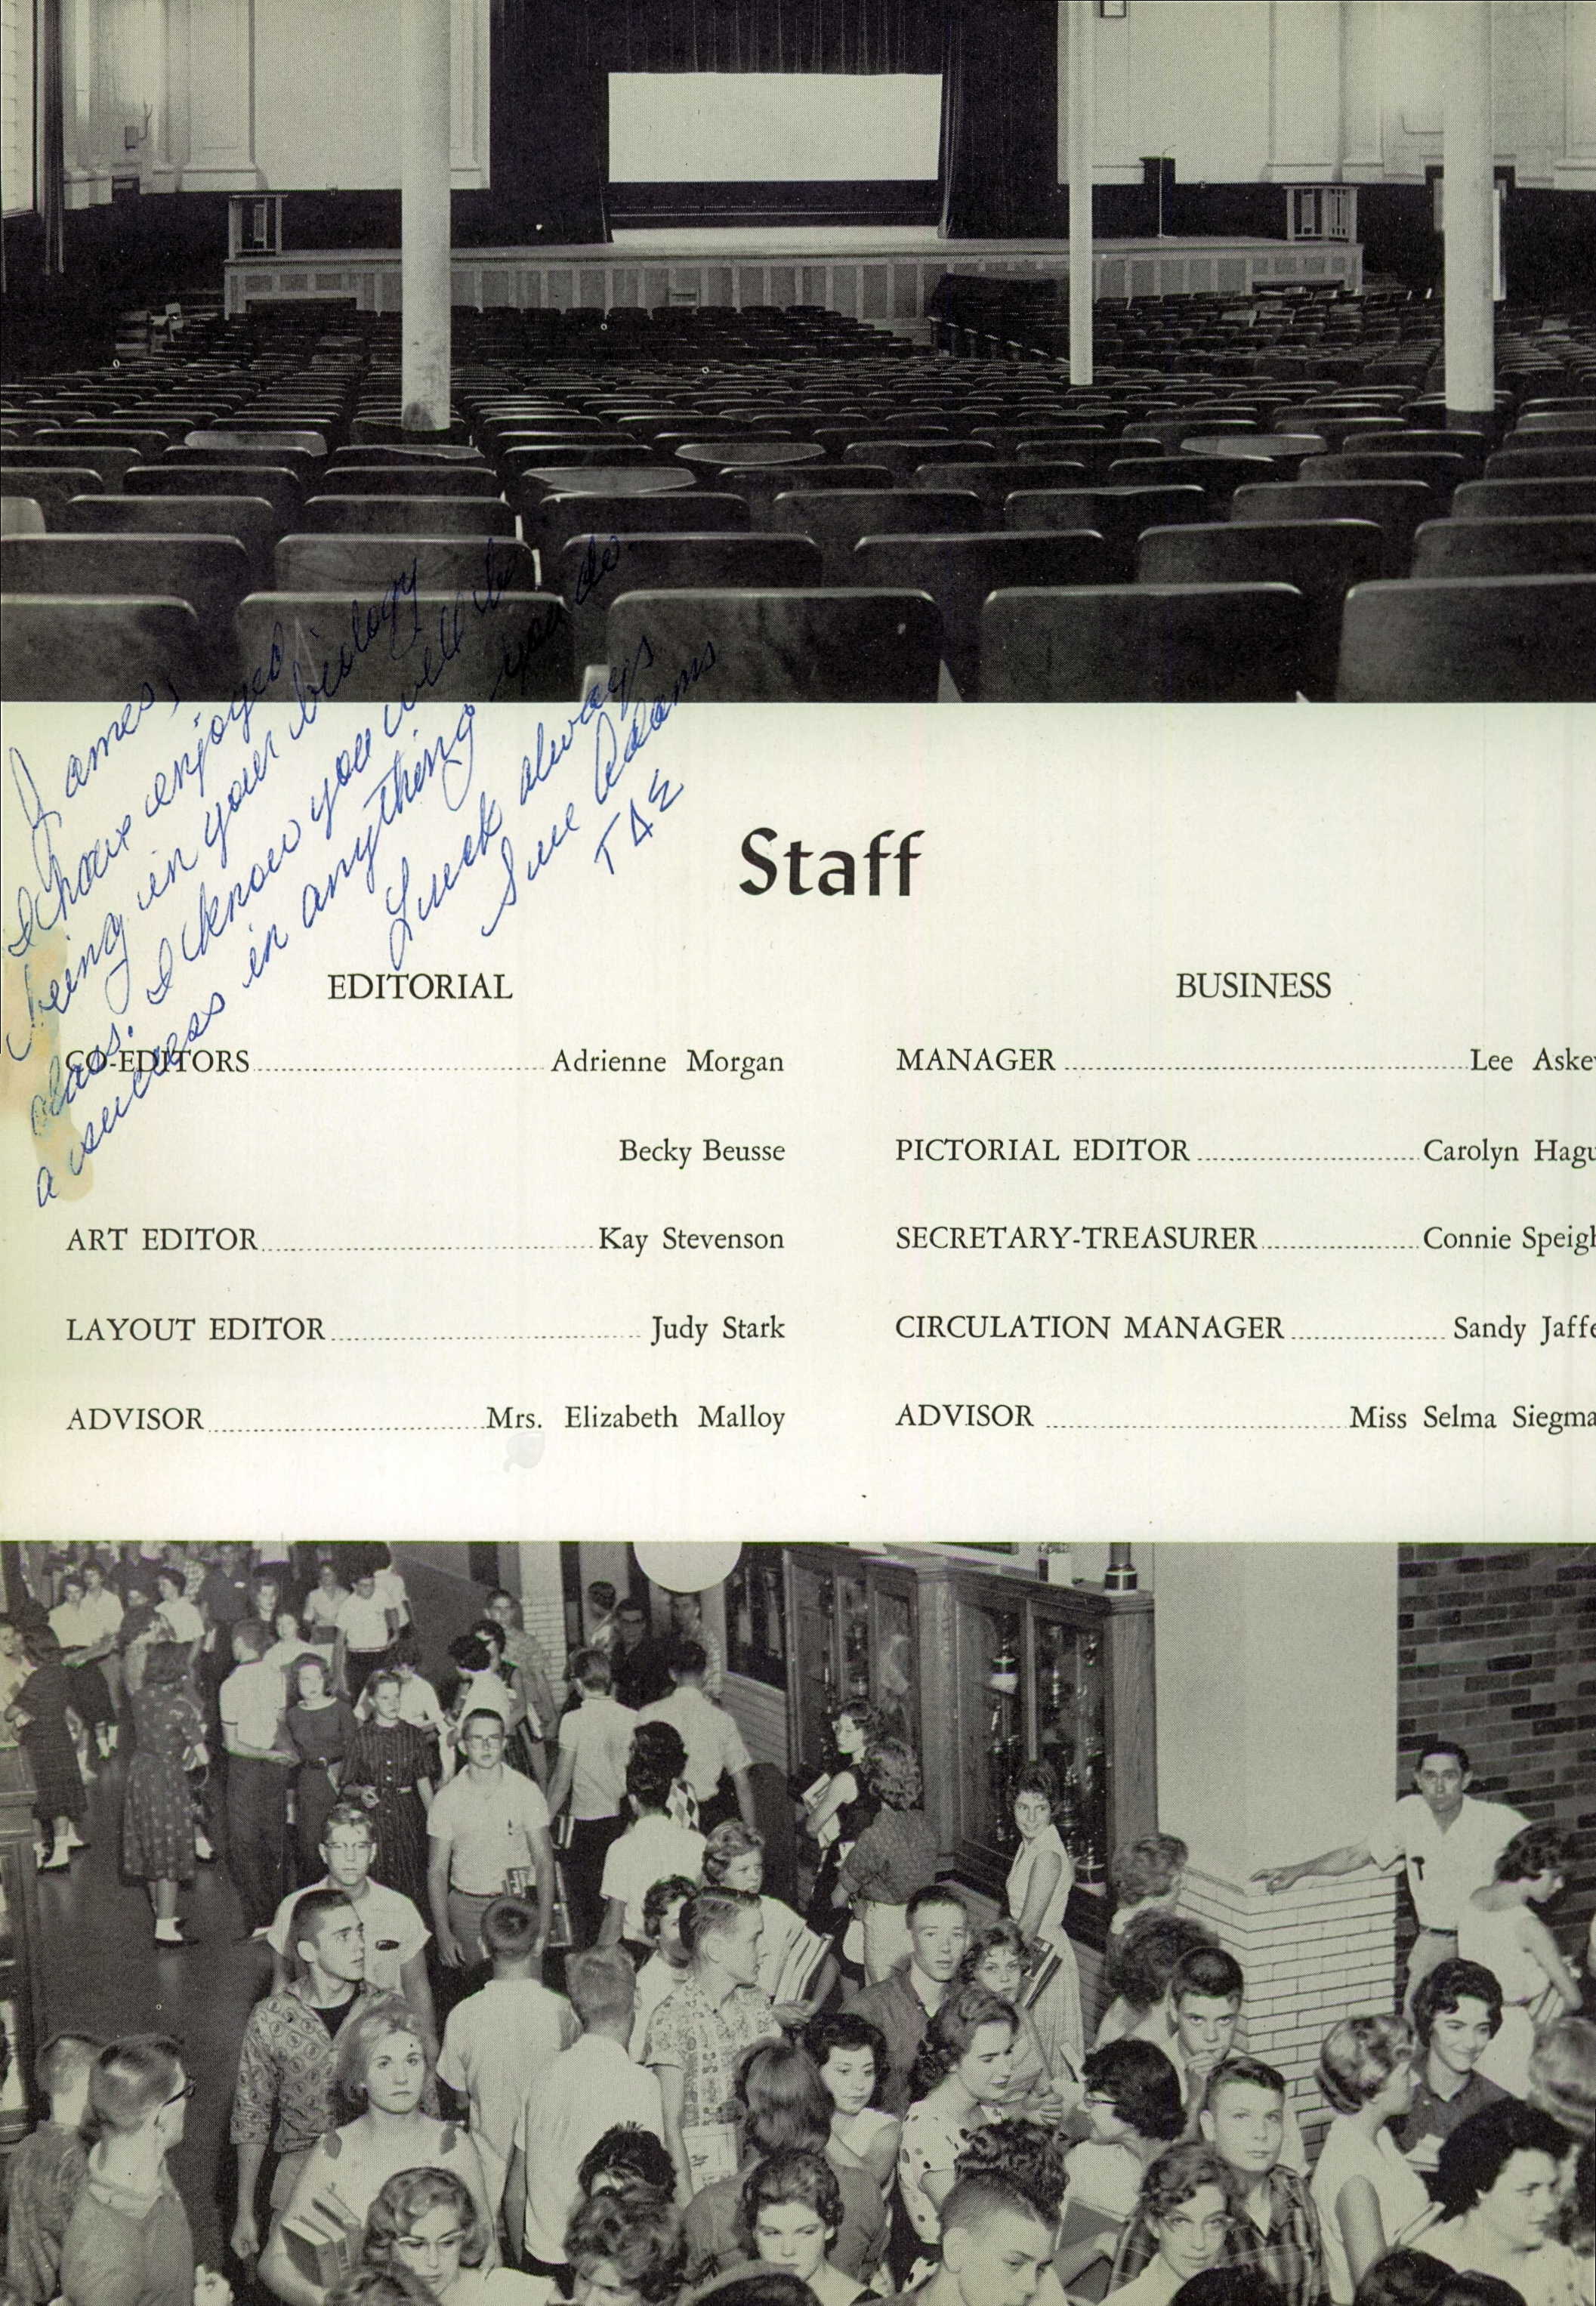 James,
I have enjoyed
being in your biology
class. I know you will be
a success in anything you do.
Luck always
Sue Adams
ΤΔΣ
Staff
EDITORIAL
CO-EDITORS Adrienne Morgan
Becky Beusse
ART EDITOR Kay Stevenson
LAYOUT EDITOR Judy Stark
ADVISOR Mrs. Elizabeth Malloy
BUSINESS
MANAGER Lee Aske
PICTORIAL EDITOR Carolyn Hagu
SECRETARY-TREASURER Connie Speigh
CIRCULATION MANAGER Sandy Jaffe
ADVISOR Miss Selma Siegma